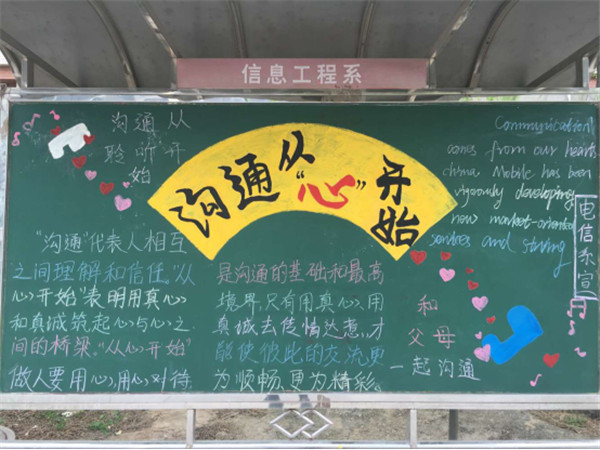 信息工程系
沟通从
聆听开
始
沟通从“心”开始
Communication
comes from our hearts
china Mobile has been
vigorously developing
new market-oriented
services and striving
电信系宣
“沟通”代表人相互
之间理解和信任。“从
心开始”表明用真心
和真诚筑起心与心之
间的桥梁。“从心开始”
做人要用心,用心对待
是沟通的基础和最高
境界,只有用真心、用
真诚去传情达意,才
能使彼此的交流更
为顺畅、更为精彩。
和
父母
一起沟通